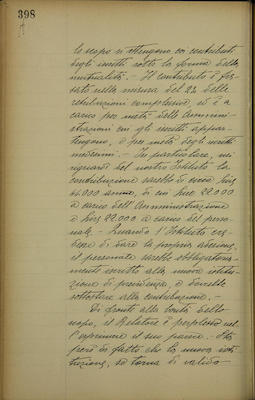 398
lo scopo si ottengono coi contributi
degli iscritti sotto la forma della
mutualità. - Il contributo è fis-
sato nella misura del 22 delle
retribuzioni complessive, ed è a
carico per metà delle Ammini-
strazioni cui gli iscritti appar-
tengono, e per metà degli iscritti
medesimi. - In particolare, nei
riguardi del nostro Istituto la
contribuzione sarebbe di circa Lire
44.000 annue, di cui Lire 22.000
a carico dell'Amministrazione
e Lire 22.000 a carico del perso-
nale. - Quando l'Istituto cre-
desse di dare la propria adesione,
il personale sarebbe obbligatoria-
mente iscritto alla nuova istitu-
zione di previdenza, e dovrebbe
sottostare alla contribuzione. -
Di fronte alla bontà dello
scopo, il Relatore è perplesso nel-
l'esprimere il suo parere. - Sta
però di fatto che la nuova isti-
tuzione, se torna di valido